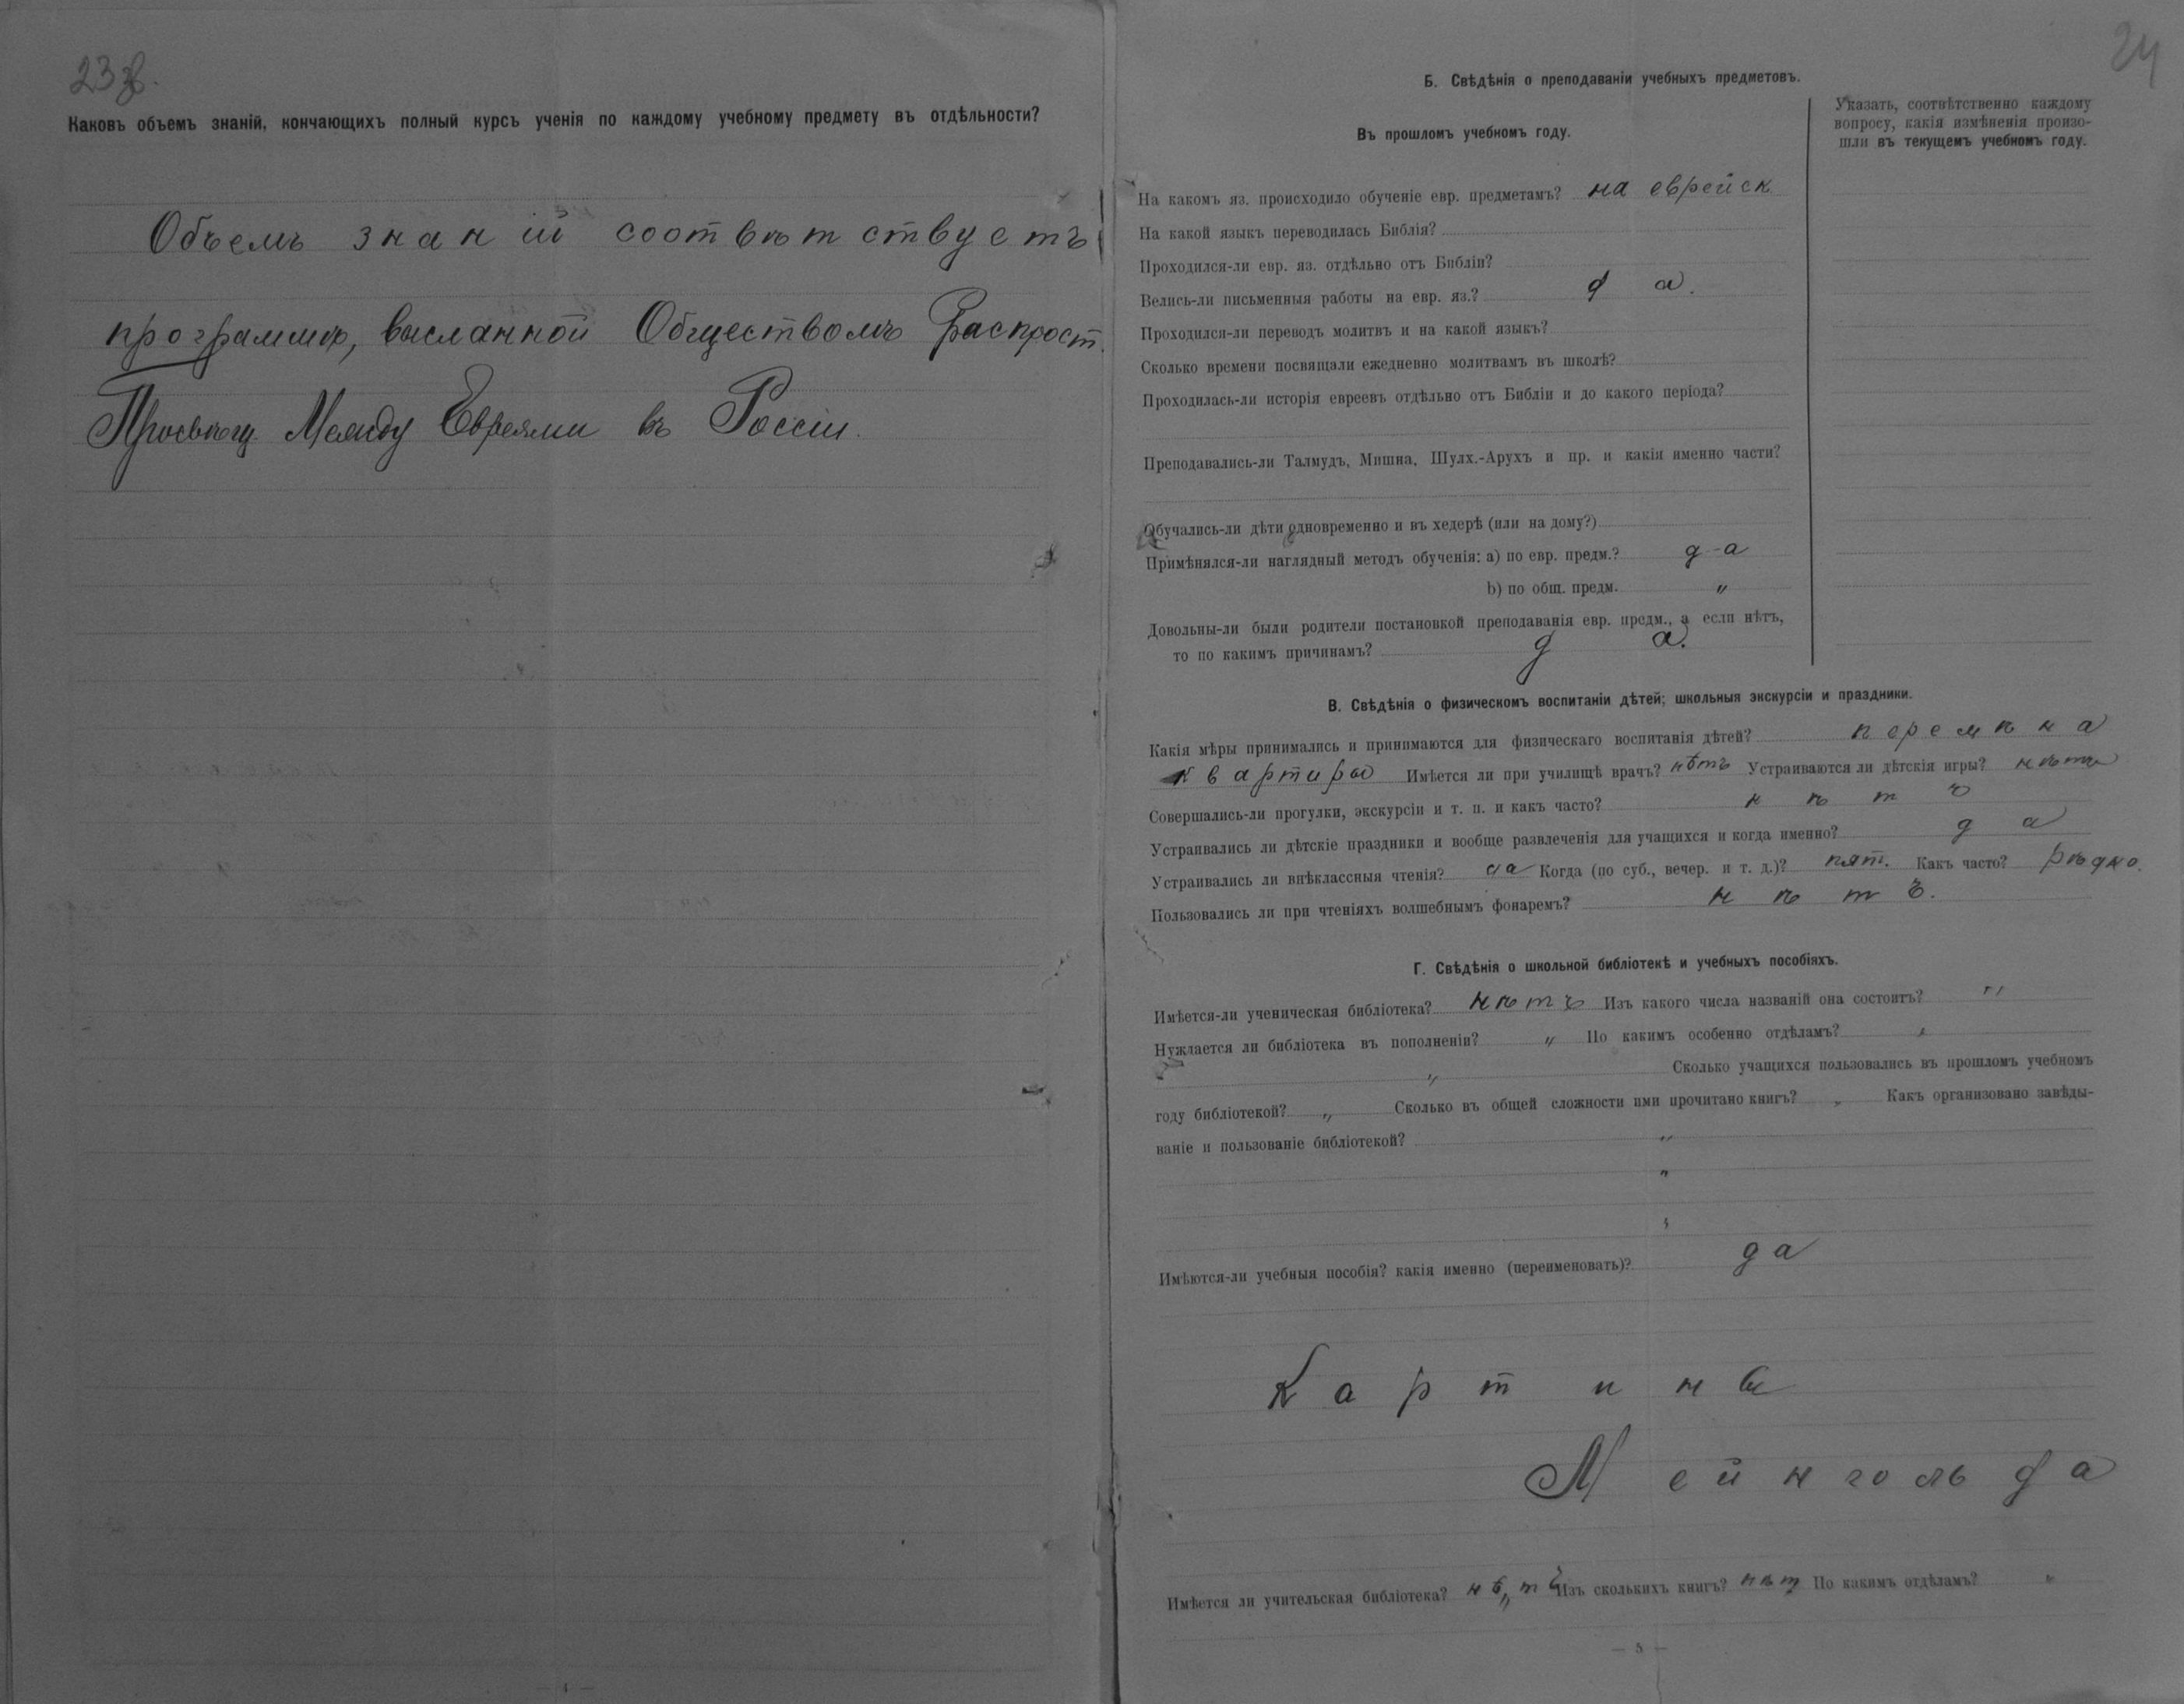 23 об.
Каковъ объемъ знаній, кончающихъ полный курсъ ученія по каждому учебному предмету въ отдѣльности?
Объемъ знаній соотвѣтствуетъ
программѣ, высланной Обществомъ Распрост.
Просвѣщ. Между Евреями въ Россіи.
— 4 —
24
Б. Свѣдѣнія о преподаваніи учебныхъ предметовъ.
Въ прошломъ учебномъ году.
Указать, соотвѣтственно каждому
вопросу, какія измѣненія произо-
шли въ текущемъ учебномъ году.
На какомъ яз. происходило обученіе евр. предметамъ? на еврейск
На какой языкъ переводилась Библія?
Проходился-ли евр. яз. отдѣльно отъ Библіи?
Велись-ли письменныя работы на евр. яз.? да.
Проходился-ли переводъ молитвъ и на какой языкъ?
Сколько времени посвящали ежедневно молитвамъ въ школѣ?
Проходилась-ли исторія евреевъ отдѣльно отъ Библіи и до какого періода?
Преподавались-ли Талмудъ, Мишна, Шулх.-Арухъ и пр. и какія именно части?
Обучались-ли дѣти одновременно и въ хедерѣ (или на дому?)
Примѣнялся-ли наглядный методъ обученія: a) по евр. предм.? д-а
b) по общ. предм. „
Довольны-ли были родители постановкой преподаванія евр. предм., а если нѣтъ,
то по какимъ причинамъ? да.
В. Свѣдѣнія о физическомъ воспитаніи дѣтей; школьныя экскурсіи и праздники.
Какія мѣры принимались и принимаются для физическаго воспитанія дѣтей? перемѣна
квартиры Имѣется ли при училищѣ врачъ? нѣтъ Устраиваются ли дѣтскія игры? нѣтъ
Совершались-ли прогулки, экскурсіи и т. п. и какъ часто? нѣтъ
Устраивались ли дѣтскіе праздники и вообще развлеченія для учащихся и когда именно? да
Устраивались ли внѣклассныя чтенія? да Когда (по суб., вечер. и т. д.)? пят. Какъ часто? рѣдко.
Пользовались ли при чтеніяхъ волшебнымъ фонаремъ? нѣтъ.
Г. Свѣдѣнія о школьной библіотекѣ и учебныхъ пособіяхъ.
Имѣется-ли ученическая библіотека? нѣтъ Изъ какого числа названій она состоитъ? „
Нуждается ли библіотека въ пополненіи? „ По какимъ особенно отдѣламъ? „
„ Сколько учащихся пользовались въ прошломъ учебномъ
году библіотекой? „ Сколько въ общей сложности ими прочитано книгъ? „ Какъ организовано завѣды-
ваніе и пользованіе библіотекой? „
„
„
Имѣются-ли учебныя пособія? какія именно (переименовать)? да
Картины
Мейнгольда
Имѣется ли учительская библіотека? нѣтъ Изъ сколькихъ книгъ? нѣт По какимъ отдѣламъ? „
— 5 —